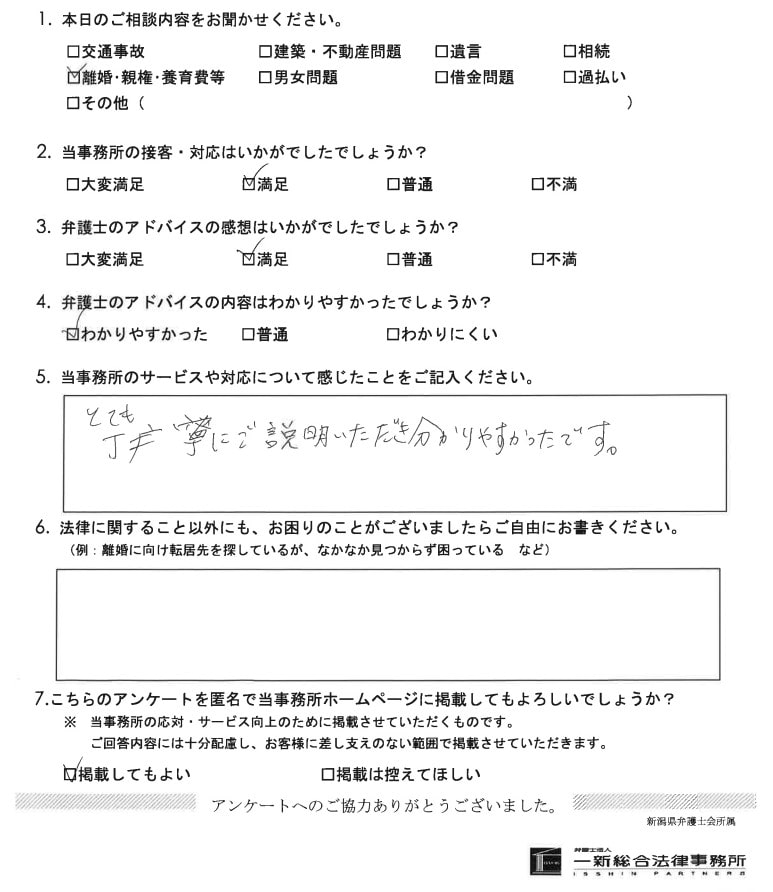 1. 本日のご相談内容をお聞かせください。
□交通事故 □建築・不動産問題 □遺言 □相続
☑離婚・親権・養育費等 □男女問題 □借金問題 □過払い
□その他（ ）
2. 当事務所の接客・対応はいかがでしたでしょうか？
□大変満足 ☑満足 □普通 □不満
3. 弁護士のアドバイスの感想はいかがでしたでしょうか？
□大変満足 ☑満足 □普通 □不満
4. 弁護士のアドバイスの内容はわかりやすかったでしょうか？
☑わかりやすかった □普通 □わかりにくい
5. 当事務所のサービスや対応について感じたことをご記入ください。
とても
丁寧にご説明いただき分かりやすかったです。
6. 法律に関すること以外にも、お困りのことがございましたらご自由にお書きください。
（例：離婚に向け転居先を探しているが、なかなか見つからず困っている　など）
7.こちらのアンケートを匿名で当事務所ホームページに掲載してもよろしいでしょうか？
※　当事務所の応対・サービス向上のために掲載させていただくものです。
ご回答内容には十分配慮し、お客様に差し支えのない範囲で掲載させていただきます。
☑掲載してもよい □掲載は控えてほしい
アンケートへのご協力ありがとうございました。
新潟県弁護士会所属
弁護士法人
一新総合法律事務所
ISSHIN PARTNERS